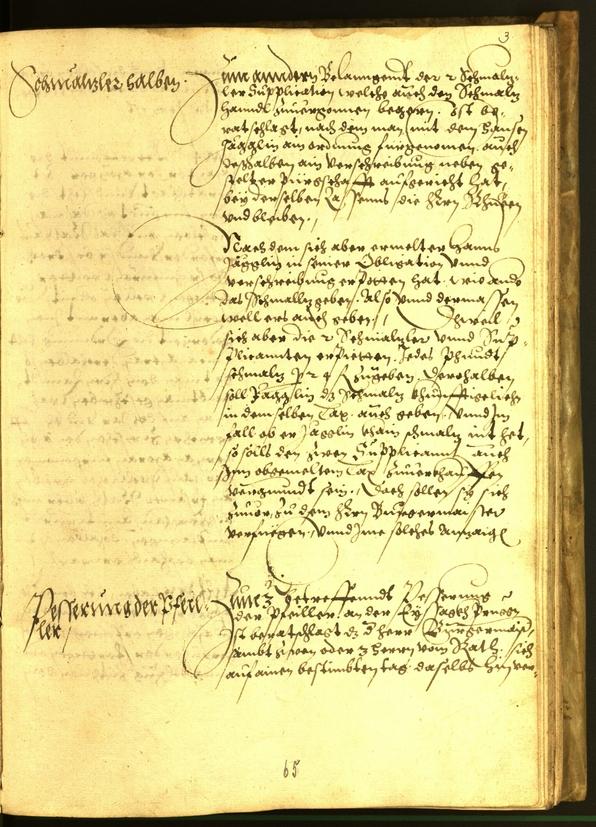 3
Schmalzler halben.
Zum anndern Belanngendt der 2 Schmalz-
ler Supplication welche auch den Schmalz
hanndl zuuergonnen begern. Ist be-
ratschlagt, nach dem man mit dem Hannsen
Jägglin am ordnung fürgenomen. auch
deßhalben ain verschreibung neben ge-
stelter Pürgschafft aufgericht hat,
bey derselben lassenns die Hrn
vnd bleiben.
Nach dem sich aber ermelter Hanns
Jägglin in seiner Obligation vnnd
verschreibung erpotten hat. wie annd
das Schmalz geben. Also vnnd dermassen
well ers auch geben. Dweil
sich aber die 2 Schmalzler vnnd Sup-
plicannten erpietten. Jedes Phundt
schmalz p 2 zugeben. Derohalben
soll Jägglin dz Schmalz khünfftigelich
in demselben Tax. auch geben. Vnnd Im
fall ob er Jägglin khain schmalz nit het,
so solls den zwen Supplicannt auch
Inn obgemeltem Tax zuuerkhauffen
vergunndt sein. Doch sollen sy sich
zuuor, zu dem Hrn Burgermaister
verfuegen, Vnnd Jme solches anzaigen
Pesserung der Pfeil-
ler
Zum 3 betreffenndt Pesserung
der Pfeiller, an der Eysagkh Pruggn
Ist beratschlagt dz d herr Burgermaist,
sambt zwen oder 3 herrn vom Rath. sich
auf ainen bestimbten tag daselbs hin ver-
65